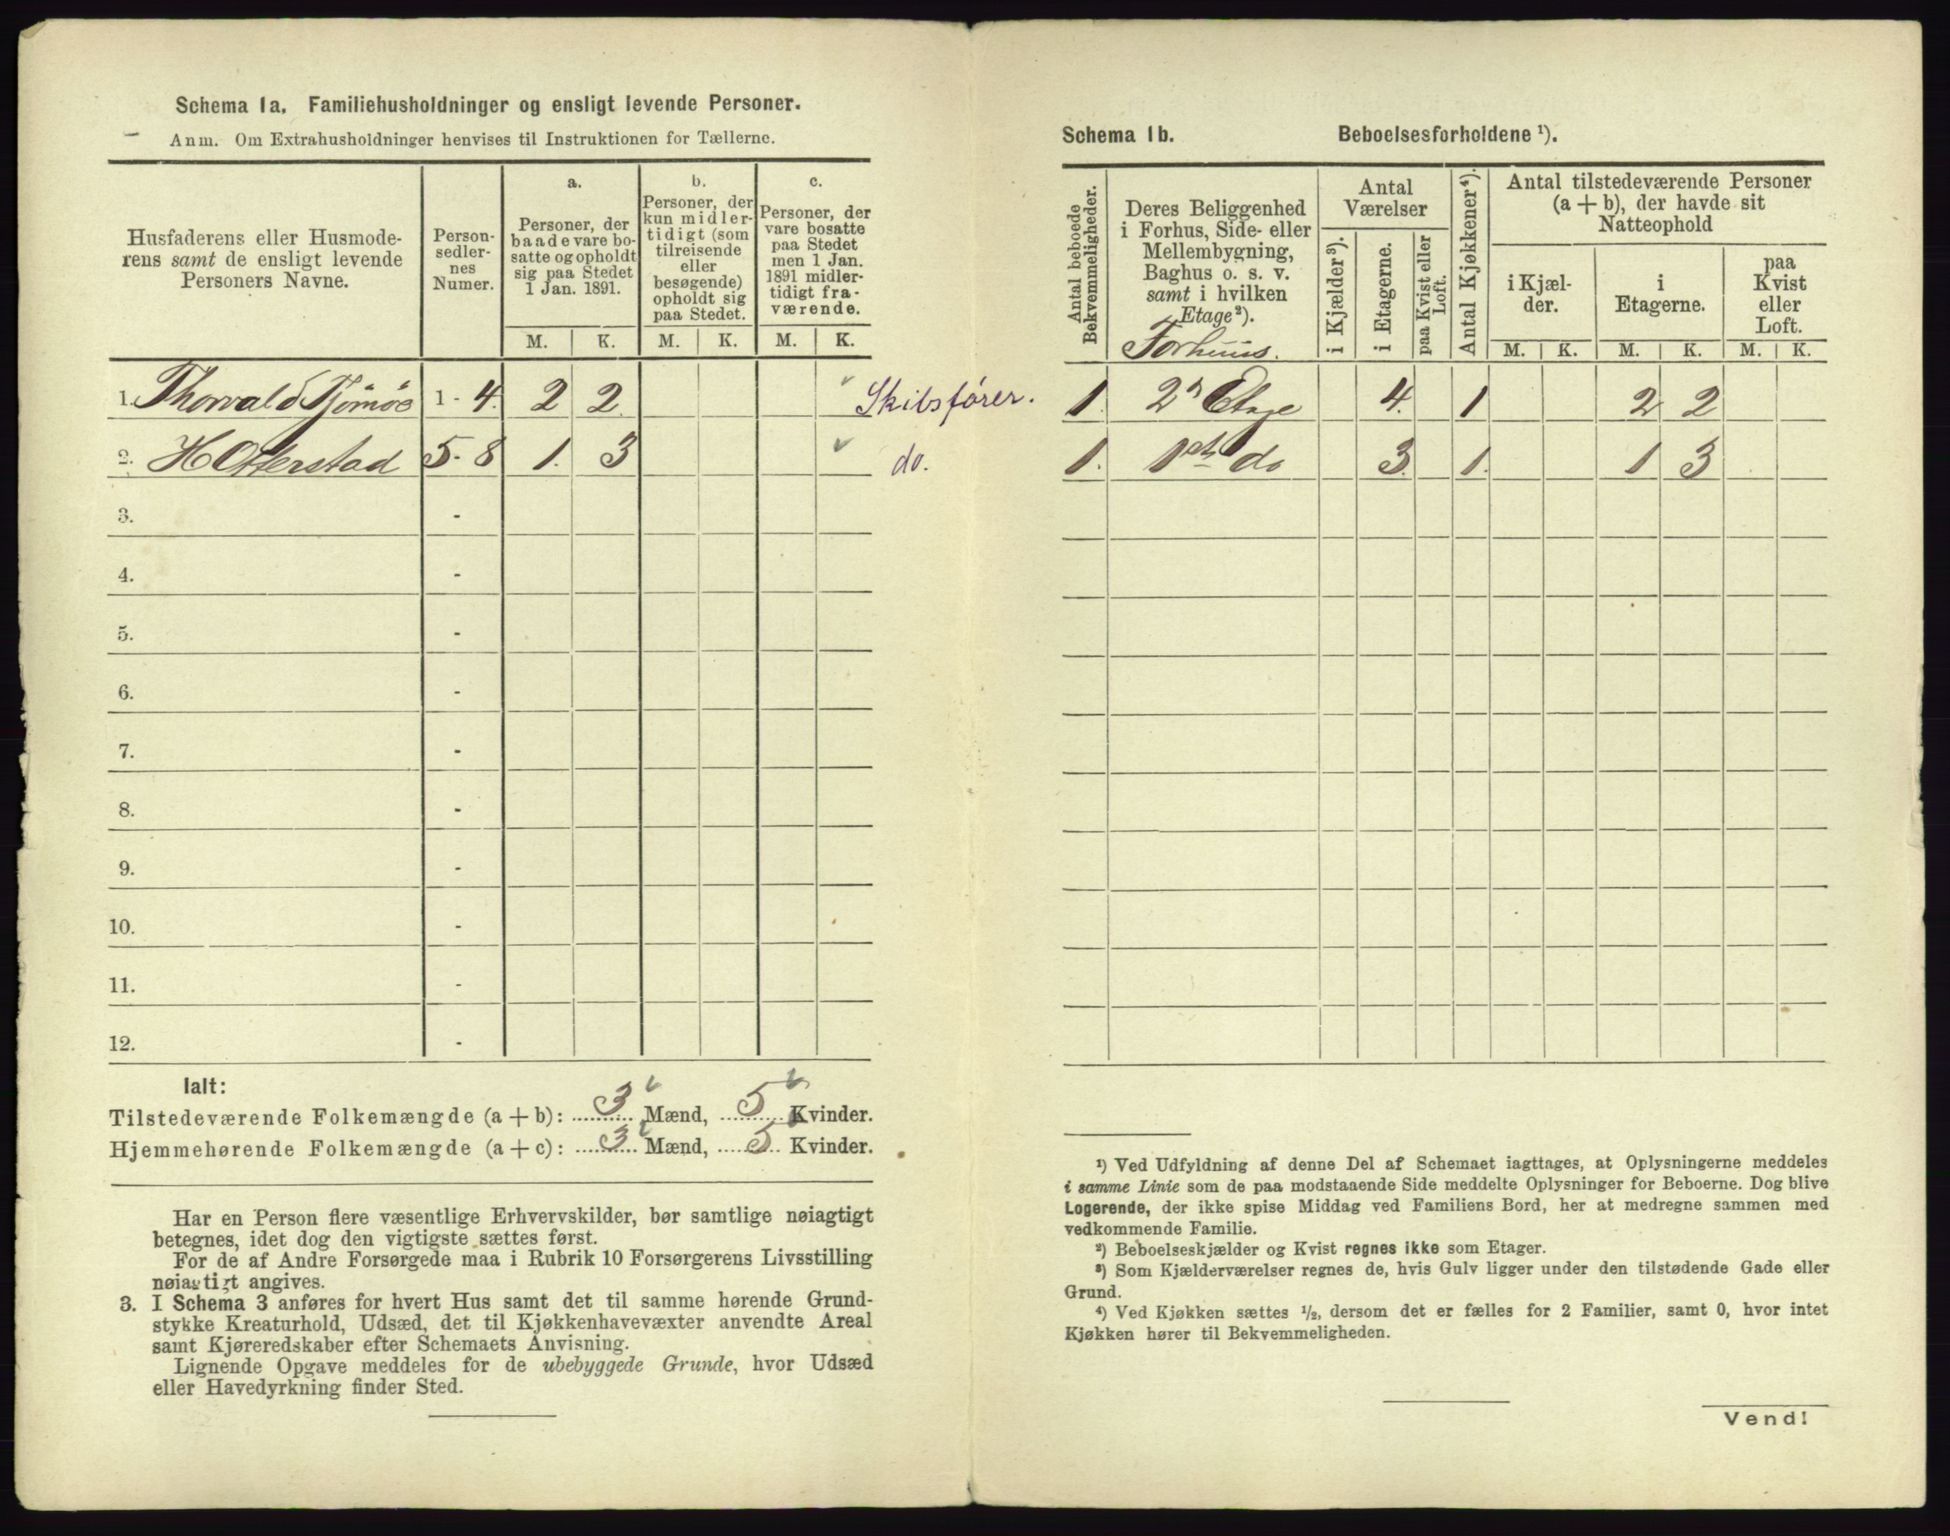 Schema 1a. Familiehusholdninger og ensligt levende Personer.
Anm. Om Extrahusholdninger henvises til Instruktionen for Tællerne.
Husfaderens eller Husmode-
rens samt de ensligt levende
Personers Navne.
Person-
sedler-
nes
Numer.
a.
Personer, der
baade vare bo-
satte og opholdt
sig paa Stedet
1 Jan. 1891.
b.
Personer, der
kun midler-
tidigt (som
tilreisende
eller
besøgende)
opholdt sig
paa Stedet.
c.
Personer, der
vare bosatte
paa Stedet
men 1 Jan.
1891 midler-
tidigt fra-
værende.
M. K. M. K. M. K.
1. Thorvald Tjömöe 1 - 4. 2 2 Skibsfører.
2. H Otterstad 5 - 8 1. 3 do.
3. -
4. -
5. -
6. -
7. -
8. -
9. -
10. -
11. -
12. -
Ialt:
Tilstedeværende Folkemængde (a + b): 3 Mænd, 5 Kvinder.
Hjemmehørende Folkemængde (a + c): 3 Mænd, 5 Kvinder.
Har en Person flere væsentlige Erhvervskilder, bør samtlige nøiagtigt
betegnes, idet dog den vigtigste sættes først.
For de af Andre Forsørgede maa i Rubrik 10 Forsørgerens Livsstilling
nøiagtigt angives.
3. I Schema 3 anføres for hvert Hus samt det til samme hørende Grund-
stykke Kreaturhold, Udsæd, det til Kjøkkenhavevæxter anvendte Areal
samt Kjøreredskaber efter Schemaets Anvisning.
Lignende Opgave meddeles for de ubebyggede Grunde, hvor Udsæd
eller Havedyrkning finder Sted.
Schema 1b. Beboelsesforholdene ¹).
Antal beboede
Bekvemmeligheder.
Deres Beliggenhed
i Forhus, Side- eller
Mellembygning,
Baghus o. s. v.
samt i hvilken
Etage²).
Forhuus.
Antal
Værelser
i Kjælder³).
i Etagerne.
paa Kvist eller
Loft.
Antal Kjøkkener⁴).
Antal tilstedeværende Personer
(a + b), der havde sit
Natteophold
i Kjæl-
der.
i
Etagerne.
paa
Kvist
eller
Loft.
M. K. M. K. M. K.
1. 2n Etage 4. 1 2 2
1. 1st do 3. 1. 1 3
¹) Ved Udfyldning af denne Del af Schemaet iagttages, at Oplysningerne meddeles
i samme Linie som de paa modstaaende Side meddelte Oplysninger for Beboerne. Dog blive
Logerende, der ikke spise Middag ved Familiens Bord, her at medregne sammen med
vedkommende Familie.
²) Beboelseskjælder og Kvist regnes ikke som Etager.
³) Som Kjælderværelser regnes de, hvis Gulv ligger under den tilstødende Gade eller
Grund.
⁴) Ved Kjøkken sættes ½, dersom det er fælles for 2 Familier, samt 0, hvor intet
Kjøkken hører til Bekvemmeligheden.
Vend!